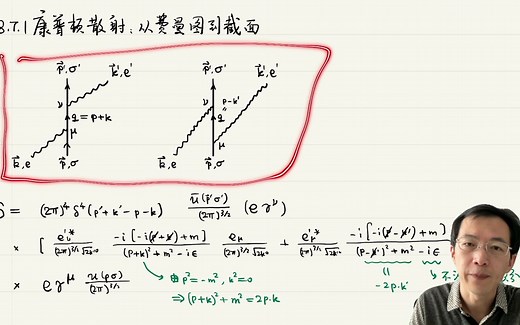 8.7.1 康普顿散射:从费曼图到截面
p⃗′,σ′ k⃗′,e′ p⃗′,σ′ k⃗′,e′
ν ν p-k′
q=p+k q
μ μ
k⃗,e p⃗,σ k⃗,e p⃗,σ
S = (2π)⁴ δ⁴(p′+k′-p-k) ū(p′σ′)/(2π)^{3/2} (eγ^ν)
× [ e′_ν*/((2π)^{3/2}√2k⁰′) -i[-i(p̸+k̸)+m]/((p+k)²+m²-iε) e_μ/((2π)^{3/2}√2k⁰) + e′_μ*/((2π)^{3/2}√2k⁰′) -i[-i(p̸-k̸′)+m]/((p-k′)²+m²-iε)
× eγ^μ u(pσ)/(2π)^{3/2} 由 p²=-m², k²=0 -2p·k′ 不
⇒(p+k)²+m²=2p·k